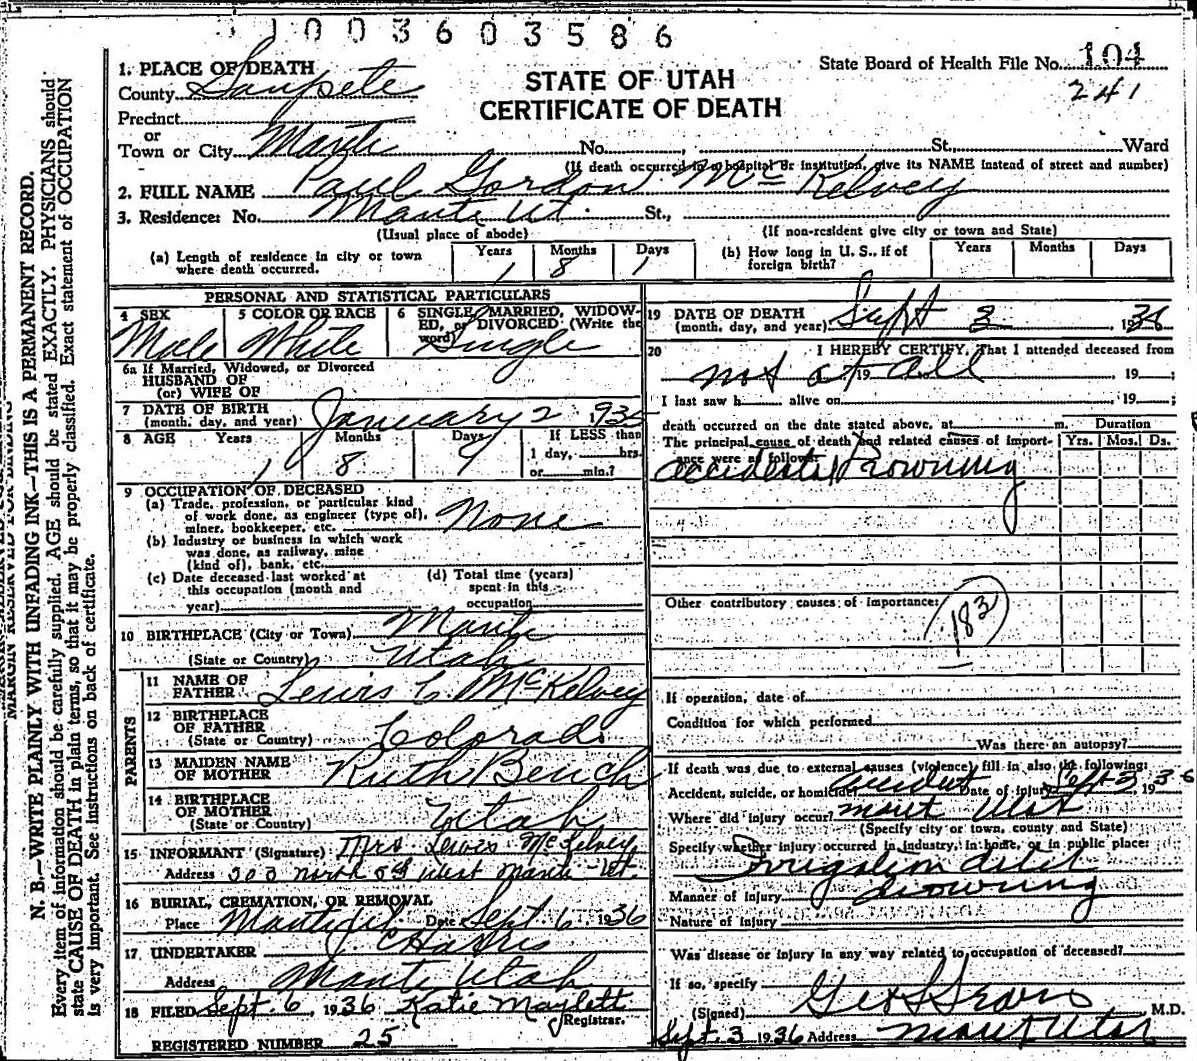 1003603586
State Board of Health File No. 104
241
STATE OF UTAH
CERTIFICATE OF DEATH
1. PLACE OF DEATH
County Sanpete
Precinct
or
Town or City Manti No. St., Ward
(If death occurred in a hospital or institution, give its NAME instead of street and number)
2. FULL NAME Paul Gordon McKelvey
3. Residence: No. Manti Ut. St.,
(Usual place of abode) (If non-resident give city or town and State)
(a) Length of residence in city or town where death occurred. Years 1 Months 8 Days 1
(b) How long in U. S., if of foreign birth? Years Months Days
PERSONAL AND STATISTICAL PARTICULARS
4 SEX Male
5 COLOR OR RACE White
6 SINGLE, MARRIED, WIDOWED, or DIVORCED (Write the word) Single
6a If Married, Widowed, or Divorced
HUSBAND OF
(or) WIFE OF
7 DATE OF BIRTH
(month, day, and year) January 2 1935
8 AGE Years 1 Months 8 Days 1 If LESS than
1 day, hrs.
or min.?
9 OCCUPATION OF DECEASED
(a) Trade, profession, or particular kind
of work done, as engineer (type of),
miner, bookkeeper, etc. None
(b) Industry or business in which work
was done, as railway, mine
(kind of), bank, etc.
(c) Date deceased last worked at
this occupation (month and
year)
(d) Total time (years)
spent in this
occupation
10 BIRTHPLACE (City or Town) Manti
(State or Country) Utah
PARENTS
11 NAME OF
FATHER Lewis C McKelvey
12 BIRTHPLACE
OF FATHER
(State or Country) Colorado
13 MAIDEN NAME
OF MOTHER Ruth Bench
14 BIRTHPLACE
OF MOTHER
(State or Country) Utah
15 INFORMANT (Signature) Mrs Lewis McKelvey
Address 200 North West Manti Ut.
16 BURIAL, CREMATION, OR REMOVAL
Place Manti Ut Date Sept 6 1936
17 UNDERTAKER
Address Manti Utah
18 FILED Sept. 6, 1936 Katie Maylett
Registrar.
REGISTERED NUMBER 25
19 DATE OF DEATH
(month, day, and year) Sept 3 1936
20 I HEREBY CERTIFY, That I attended deceased from
not at all 19 , 19 ;
I last saw h alive on , 19 ;
death occurred on the date stated above, at m.
Duration
Yrs. Mos. Ds.
The principal cause of death and related causes of importance were as follows:
accidental Drowning
Other contributory causes of importance:
183
If operation, date of
Condition for which performed
Was there an autopsy?
If death was due to external causes (violence) fill in also the following:
Accident, suicide, or homicide? accident Date of injury Sept 3 1936
Where did injury occur? Manti Utah
(Specify city or town, county and State)
Specify whether injury occurred in industry, in home, or in public place:
Irrigation ditch
Manner of injury drowning
Nature of injury
Was disease or injury in any way related to occupation of deceased?
If so, specify
(Signed) Geo L Sears M.D.
Sept. 3 1936 Address Manti Utah
MARGIN RESERVED FOR BINDING
N. B.—WRITE PLAINLY WITH UNFADING INK—THIS IS A PERMANENT RECORD.
Every item of information should be carefully supplied. AGE should be stated EXACTLY. PHYSICIANS should
state CAUSE OF DEATH in plain terms, so that it may be properly classified. Exact statement of OCCUPATION
is very important. See instructions on back of certificate.